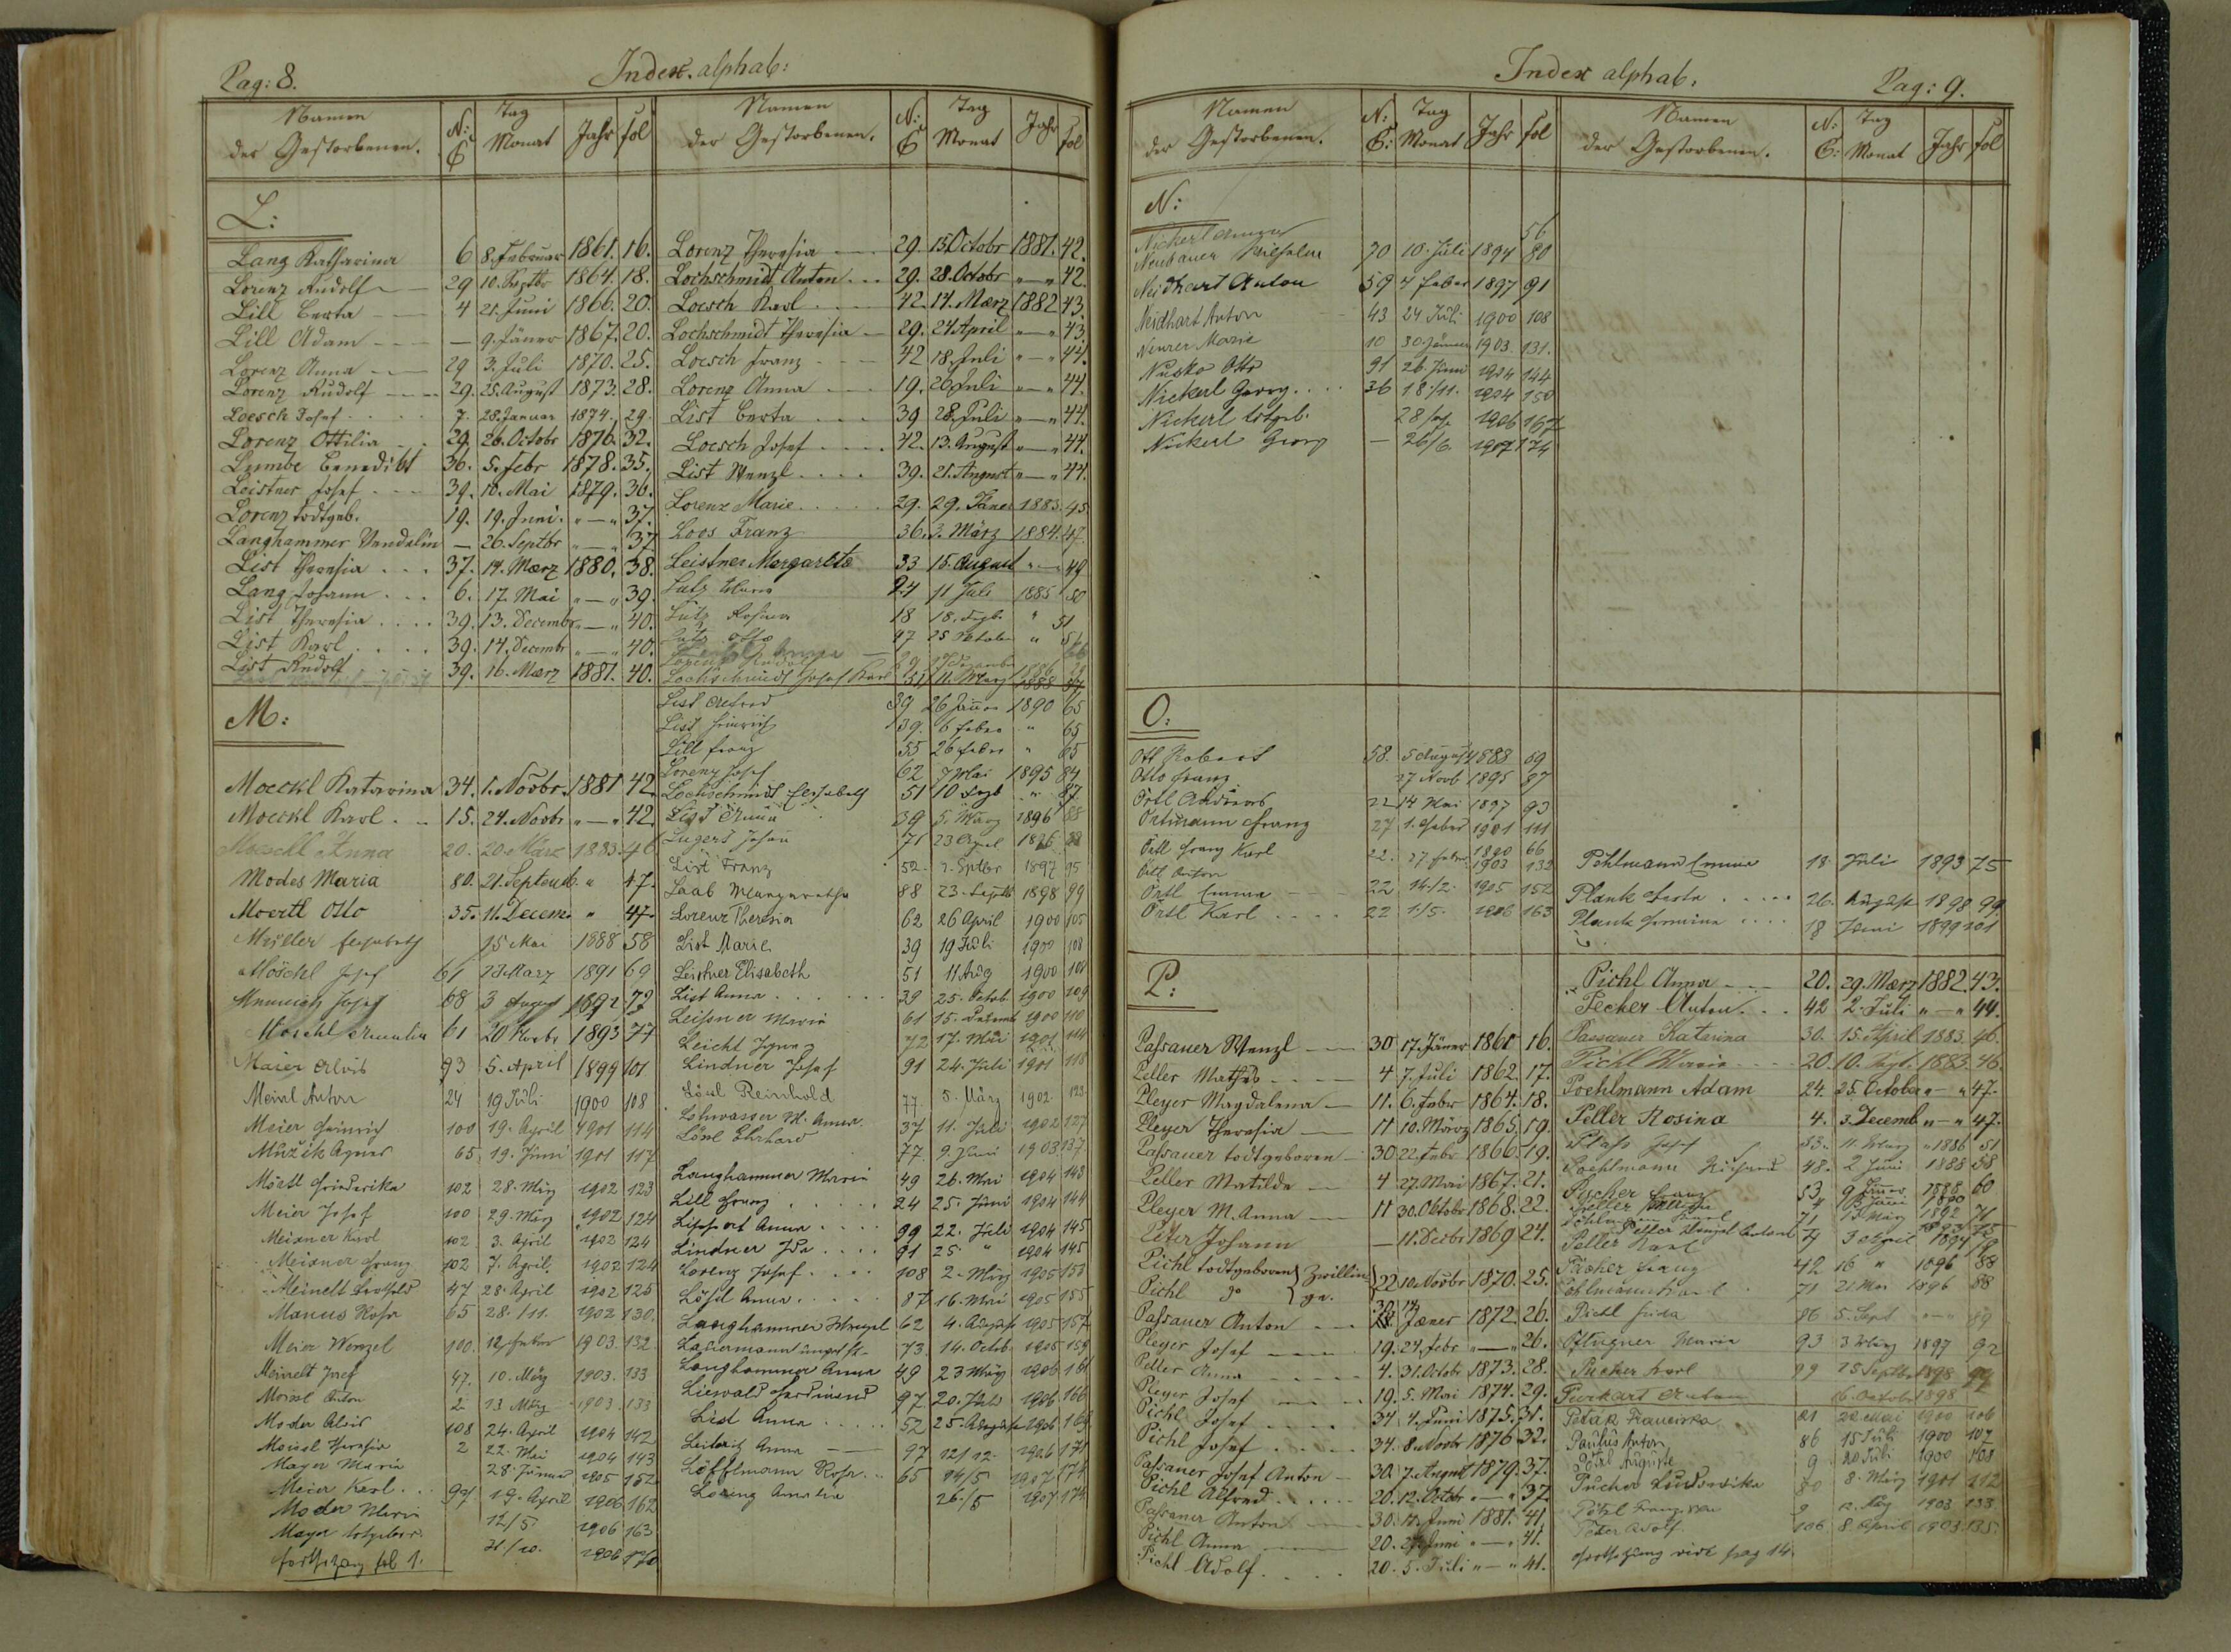 Pag: 8.
Index. alphab:
Namen der Gestorbenen. N: C Tag Monat Jahr fol
L:
Lang Katharina 6 8. Februar 1861. 16.
Lorenz Rudolf 29 10. Septbr 1864. 18.
Lill Berta 4 21. Juni 1866. 20.
Lill Adam — 9. Jäner 1867. 20.
Lorenz Anna 29 3. Juli 1870. 25.
Lorenz Rudolf 29. 25. August 1873. 28.
Loesch Josef 7. 28. Januar 1874. 29.
Lorenz Ottilia 29. 26. Octobr 1876. 32.
Lumbe Benedikt 36. 5. febr 1878. 35.
Leistner Josef 39. 10. Mai 1879. 36.
Lorenz todtgeb. 19. 19. Juni. " — " 37.
Langhammer Vendelin — 26. Septbr " — " 37
List Theresia 37. 14. Maerz 1880. 38.
Lang Johann 6. 17. Mai " — " 39.
List Theresia 39. 13. Decembr " — " 40.
List Karl 39. 14. Decembr " — " 40.
List Rudolf 39. 16. Maerz 1881. 40.
M:
Moeckl Katarina 34. 1. Novbr. 1881 42.
Moeckl Karl 15. 24. Novbr " — " 42.
Moeckl Anna 20. 20. März 1883. 46
Modes Maria 80. 21. Septemb. " 47.
Moertl Otto 35. 11. Decem. " 47.
Müller Elisabeth 15 Mai 1888 58
Möschl Josef 61 23 März 1891 69
68 3 August 1892 72
Möschl Amalia 61 20 Novbr 1893 77
Maier Alois 93 5. April 1899 101
Meinl Anton 24 19 Juli 1900 108
Meier Heinrich 100 19. April 1901 114
Mužik Agnes 65 19. Juni 1901 117
Mörtl Friederika 102 28. März 1902 123
Meier Josef 100 29. März 1902 124
Meixner Karl 102 3. April 1902 124
Meixner Franz 102 7. April. 1902 124
Meinelt 47 28. April 1902 125
Manus Rosa 65 28./11. 1902 130.
Meier Wenzel 100. 12. Feber 1903. 132
Meinelt Josef 47. 10. März 1903. 133
Meinl Anton 2 13 März 1903. 133
Moder Alois 108 24. April 1904 142
Meissl Theresia 2 22. Mai 1904 143
Mayer Maria 28. Jänner 1905 152
Meier Karl 97 19. April 1906 162
Moder Maria 12/5 1906 163
Mayer totgebor. 31/10. 1906 170
Fortsetzung fol 1.
Namen der Gestorbenen. N: C Tag Monat Jahr fol
Lorenz Theresia 29. 15. Octobr 1881. 42.
Lochschmidt Anton 29. 28. Octobr " — " 42.
Loesch Karl 42. 14. Maerz 1882 43.
Lochschmidt Theresia 29. 24. April " — " 43.
Loesch Franz 42 18. Juli " — " 44.
Lorenz Anna 19. 26. Juli " — " 44.
List Berta 39 28. Juli " — " 44.
Loesch Josef 42. 13. August " — " 44.
List Wenzl 39. 21. August " — " 44.
Lorenz Marie 29. 29. Jäner 1883. 45
Loos Franz 36. 3. März 1884. 47.
Leistner Margarete 33 15. August " — 49
Lutz Maria 24 11 Juli 1885 50
Lutz Rosina 18 18. Sept. " 51
Lutz Otto 47 25 Oktober " 56
Lorenz Rudolf
Lochschmidt Josef Karl 51 11 März 1888 57
List Alfred 39 26 Jänner 1890 65
List Heinrich 39. 6 Feber " 65
Lill Franz 55 26 Feber " 65
Lorenz Josef 62 7 Mai 1895 84
Lochschmidt Elisabeth 51 10 Sept " 87
List Anna 39 5. März 1896 88
Lugert Johann 71 23 April 1896 88
List Franz 52. 2. Septbr 1897 95
Laab Margaretha 88 23. Septb 1898 99
Lorenz Theresia 62 26 April 1900 105
List Marie 39 19 Juli 1900 108
Leistner Elisabeth 51 11 Aug 1900 108
List Anna 39 25. Octob. 1900 109
Leissner Maria 61 15. Dezemb 1900 110
Leicht Ignaz 72 17. Mai 1901 114
Lindner Josef 91 24. Juli 1901 118
Lösl Reinhold 77 5. März 1902 123
Lohwasser M. Anna 37 11. Juli 1902 127
Lösl Ehrhard 77 9. Juni 1903 137
Langhammer Maria 49 26. Mai 1904 143
Lill Franz 24 25. Juni 1904 144
Lippert Anna 99 22. Juli 1904 145
Lindner Ida 91 25 " 1904 145
Lorenz Josef 108 2. März 1905 153
Lösl Anna 87 16. Mai 1905 155
Langhammer Wenzel 62 4. August 1905 157
73. 14. Octob. 1905 159
Langhammer Anna 49 23 März 1906 161
Liewald Ferdinand 97 20. Juli 1906 166
List Anna 52 25. August 1906 168
Leiberit Anna 97 12/12. 1906 171
Löfflmann Rosa 65 14/5 1907 174
Lorenz Amalia 26./5 1907 174
Index alphab.
Pag: 9.
Namen der Gestorbenen. N: C: Tag Monat Jahr fol
N:
Nickerl 56
Neubauer Wilhelm 70 10. Juli 1894 80
Neidhart Anton 59 4 Feber 1897 91
Neidhart Anton 43 24 Juli 1900 108
Neurer Marie 10 30. Jänner 1903. 131.
Nusko Otto 91 26. Juni 1904 144
Nickerl Georg 36 18./11. 1904 150
Nickerl totgeb. 1906 167
Nickerl Georg — 26/6. 1907 174
O:
Ott Robert 58. 5 August 1888 59
Otto Franz 27 Novb 1895 87
Örtl Andreas 22 14 Mai 1897 93
Ortmann Franz 27 1. Feber 1901 111
Örtl Franz Karl 22. 27. Feber 1890 66
Örtl Anton 1903 132
Örtl Emma 22 14./2. 1905 152
Örtl Karl 22 1/5. 1906 163
P:
Passauer Wenzl 30 17. Jäner 1861 16.
Peller Mathes 4 7. Juli 1862. 17.
Pleyer Magdalena 11. 6. Febr 1864. 18.
Pleyer Theresia 11 10. März 1865. 19.
Passauer todtgeboren 30 22. Febr 1866. 19.
Peller Matilde 4 27. Mai 1867. 21.
Pleyer M. Anna 11 30. Oktobr 1868. 22.
Peter Johann — 11. Decbr 1869 24.
Pichl todtgeboren } Zwillin-
Pichl do } ge. 22 10. Novbr 1870. 25.
Passauer Anton 30. 14. Jäner 1872. 26.
Pleyer Josef 19. 24. febr " — " 26.
Peller Anna 4. 31. Octobr 1873. 28.
Pleyer Josef 19. 5. Mai 1874. 29.
Pichl Josef 34. 4. Juni 1875. 31.
Pichl Josef 34. 8. Novbr 1876 32.
Passauer Josef Anton 30. 7. August 1879. 37.
Pichl Alfred 20. 12. Octobr " — " 37.
Passauer Anton 30. 17. Juni 1881. 41.
Pichl Anna 20. 27. Juni " — " 41.
Pichl Adolf 20. 5. Juli " — " 41.
Namen der Gestorbenen. N: C: Tag Monat Jahr fol
Pöhlmann Emma 18 Juli 1893 75
Plank Berta 26. August 1898 99
Plank Hermine 18 Juni 1899 101
Pichl Anna 20. 29. Maerz 1882. 43.
Pecher Anton 42 2. Juli " — " 44.
Passauer Katarina 30. 15. April 1883. 46.
Pichl Maria 20. 10. Sept. 1883. 46.
Poehlmann Adam 24. 25. October " — " 47.
Peller Rosina 4. 3. Decemb " — " 47.
Plass Josef 53. 11. März 1886 51
Poehlmann Richard 48. 2 Juni 1888 58
Pucher Franz 53 9. Jänner 1888 60
Peller Karl
Pucher Franz 42 16 " 1896 88
Pöhlmann Karl 71 21 Mai 1896 88
Pichl Julia 86 5. Sept " — " 89
Pflugner Maria 93 3 März 1897 92
Pucher Karl 99 25 Septbr 1898 99
Purkart Anton 6. Octobr 1898
Peták Franciska 21 22 Mai 1900 106
Paulus Anton 86 15 Juli 1900 107
Pötzl Auguste 9 20 Juli 1900 108
Pucher Ludovika 80 8. März 1901 112
Pötzl Franziska 9 12. März 1903 133
Peter Adolf 106 8. April 1903 135.
Fortsetzung vide pag 14